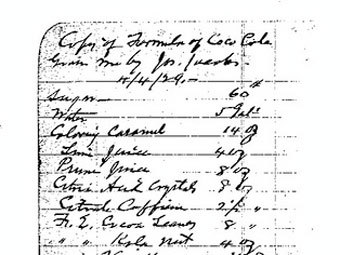 Copy of Formula of Coco Cola
Given me by Jos. Jacobs.
4/4/29.—
Sugar — 60 #
Water 5 gals
Coloring Caramel 14 oz
Lime Juice 4 oz
Prune Juice 8 oz
Citric Acid Crystals 8 oz
Citrate Caffeine 2 1/2 "
Fl. E. Cocoa Leaves 8 "
" " Kola Nut 4 oz